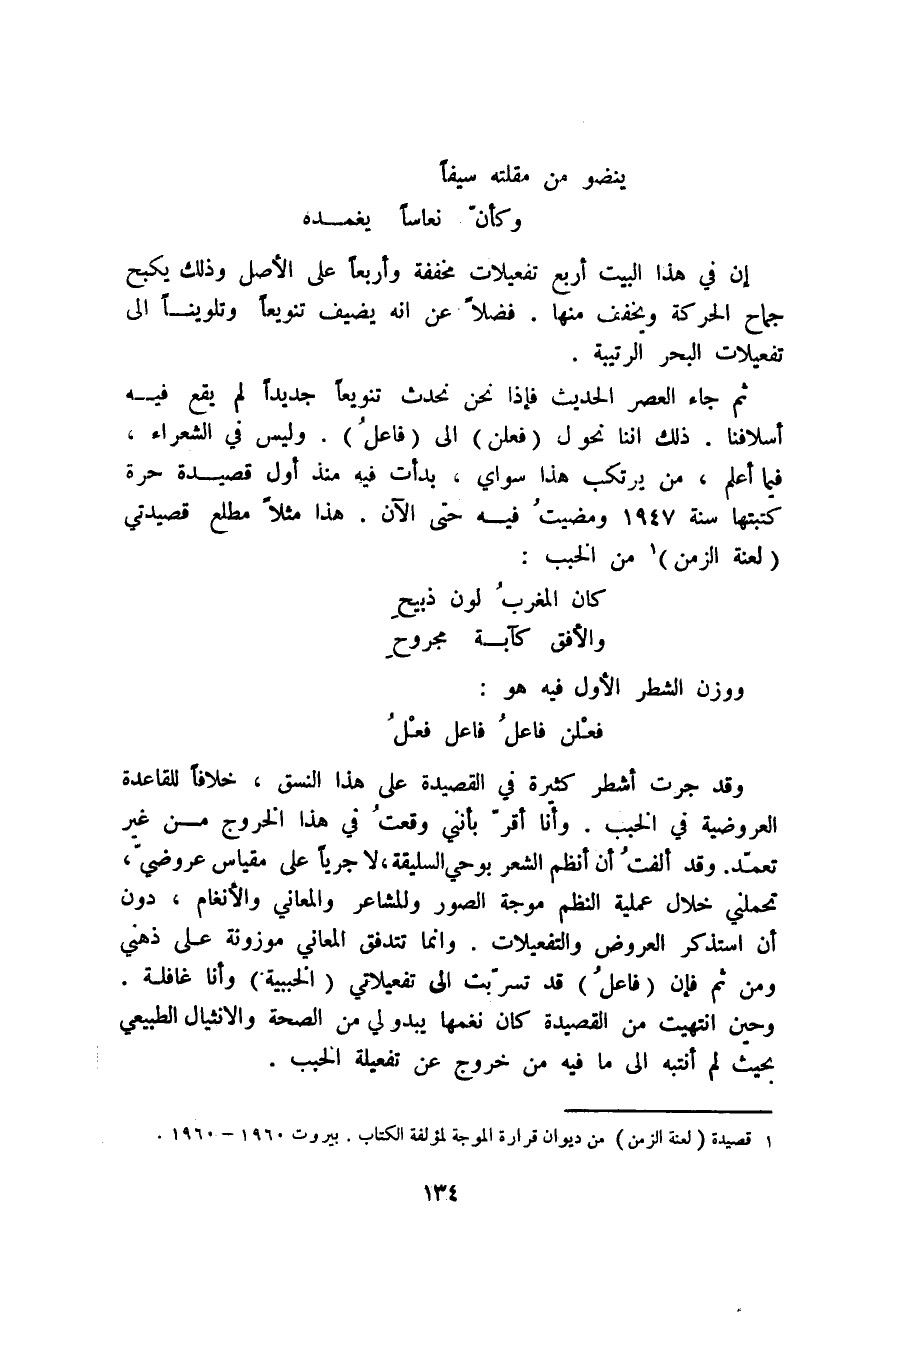 ينضو من مقلته سيفاً
وكأنّ نعاساً يغمــده
إن في هذا البيت أربع تفعيلات مخففة وأربعاً على الأصل وذلك يكبح
جماح الحركة ويخفف منها . فضلاً عن انه يضيف تنويعاً وتلوينــاً الى
تفعيلات البحر الرتيبة .
ثم جاء العصر الحديث فإذا نحن نحدث تنويعاً جديداً لم يقع فيــه
أسلافنا . ذلك اننا نحول ( فعلن ) الى ( فاعلُ ) . وليس في الشعراء ،
فيما أعلم ، من يرتكب هذا سواي ، بدأت فيه منذ أول قصيــدة حرة
كتبتها سنة ١٩٤٧ ومضيتُ فيــه حتى الآن . هذا مثلاً مطلع قصيدتي
( لعنة الزمن )١ من الخبب :
كان المغربُ لون ذبيحِ
والأفق كآبــة مجروحِ
ووزن الشطر الأول فيه هو :
فعْلن فاعلُ فاعل فعْلُ
وقد جرت أشطر كثيرة في القصيدة على هذا النسق ، خلافاً للقاعدة
العروضية في الخبب . وأنا أقرّ بأنني وقعتُ في هذا الخروج مــن غير
تعمّد. وقد ألفتُ أن أنظم الشعر بوحي السليقة ، لا جرياً على مقياس عروضيّ ،
تحملني خلال عملية النظم موجة الصور وللشاعر والمعاني والأنغام ، دون
أن استذكر العروض والتفعيلات . وانما تتدفق المعاني موزونة علـى ذهني
ومن ثم فإن ( فاعلُ ) قد تسرّبت الى تفعيلاتي ( الخببية ) وأنا غافلـة .
وحين انتهيت من القصيدة كان نغمها يبدو لي من الصحة والانثيال الطبيعي
بحيث لم أنتبه الى ما فيه من خروج عن تفعيلة الخبب .
١ قصيدة ( لعنة الزمن ) من ديوان قرارة الموجة لمؤلفة الكتاب . بيروت ١٩٦٠ – ١٩٦٠ .
١٣٤